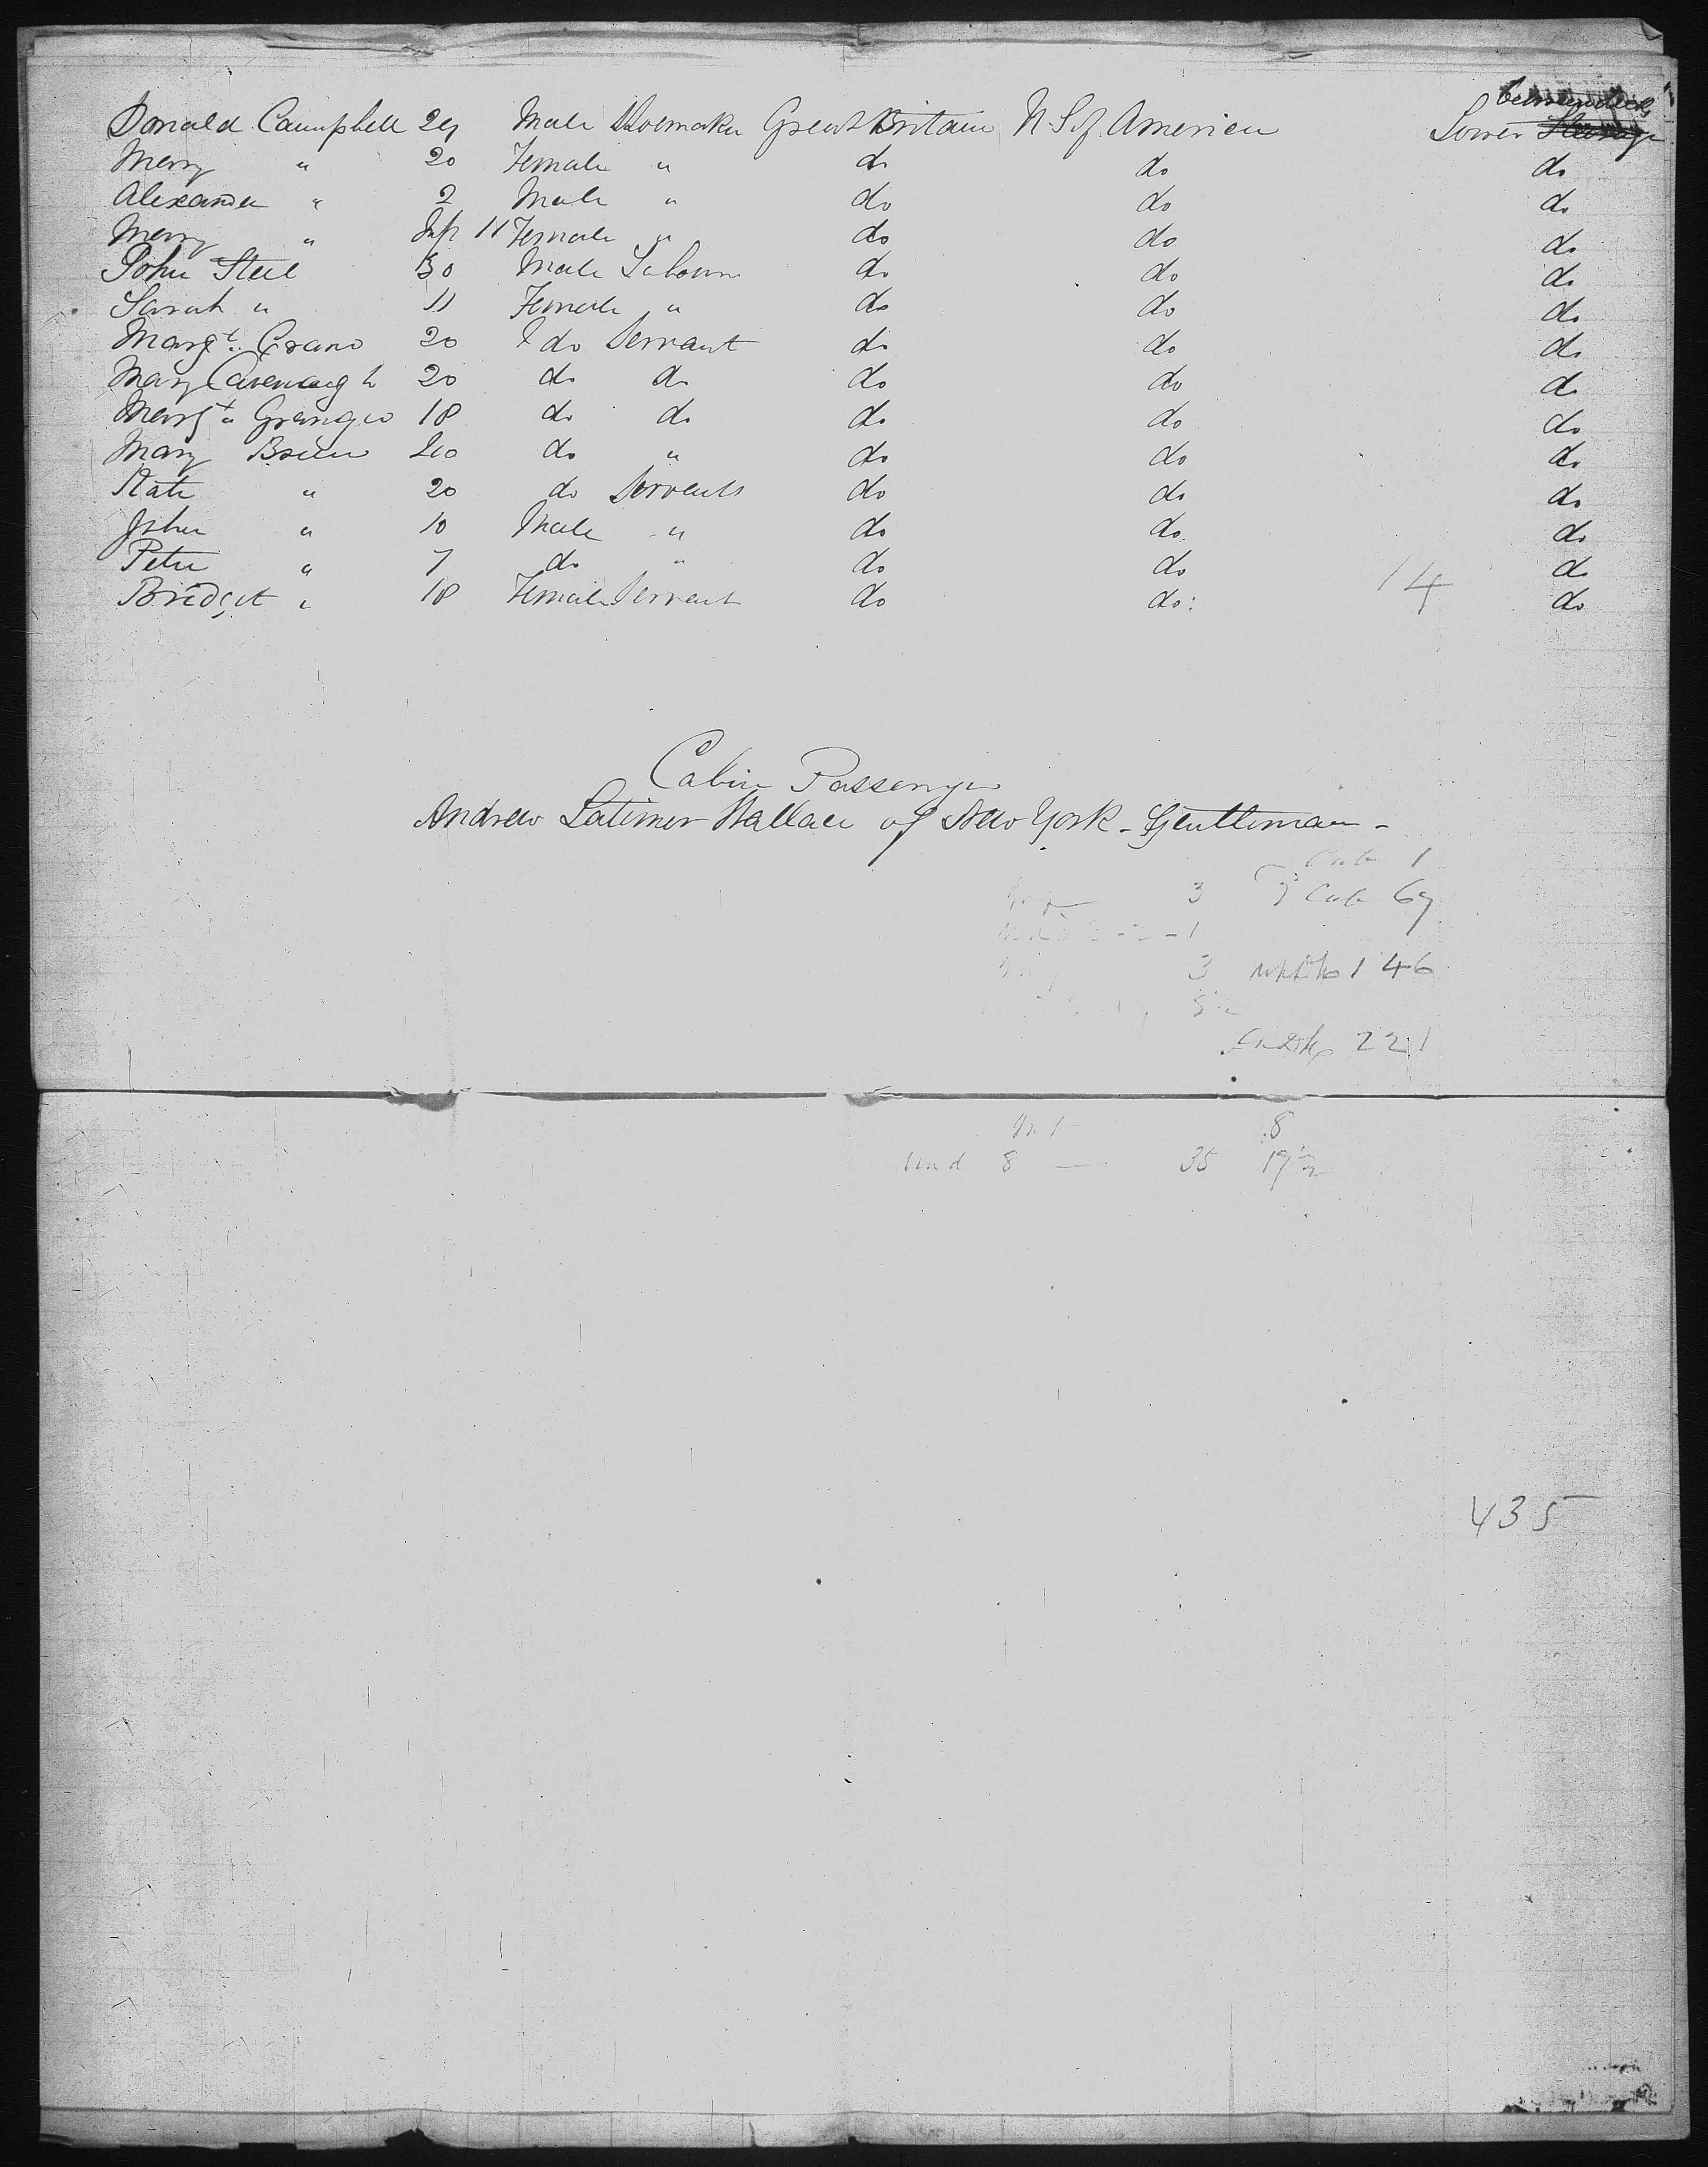 betweendecks
Donald Campbell 29 Male Shoemaker Great Britain U S of America Lower Steerage
Mary " 20 Female " do do do
Alexander " 2 Male " do do do
Mary " Inft 11 Female " do do do
John Steel 30 Male Labourer do do do
Sarah " 11 Female " do do do
Margt. Crano 20 do Servant do do do
Mary Cavenaugh 20 do do do do do
Margt. Grangeo 18 do do do do do
Mary Brien 20 do " do do do
Kate " 20 do Servants do do do
John " 10 Male " do do do
Peter " 7 do " do do do
Bridget " 18 Female Servant do do: 14 do
Cabin Passenger
Andrew Latimer Wallace of New York - Gentleman -
Cab 1
3 2 Cab 67
- 1
3 146
221
8
und 8 — 35 19 1/2
435